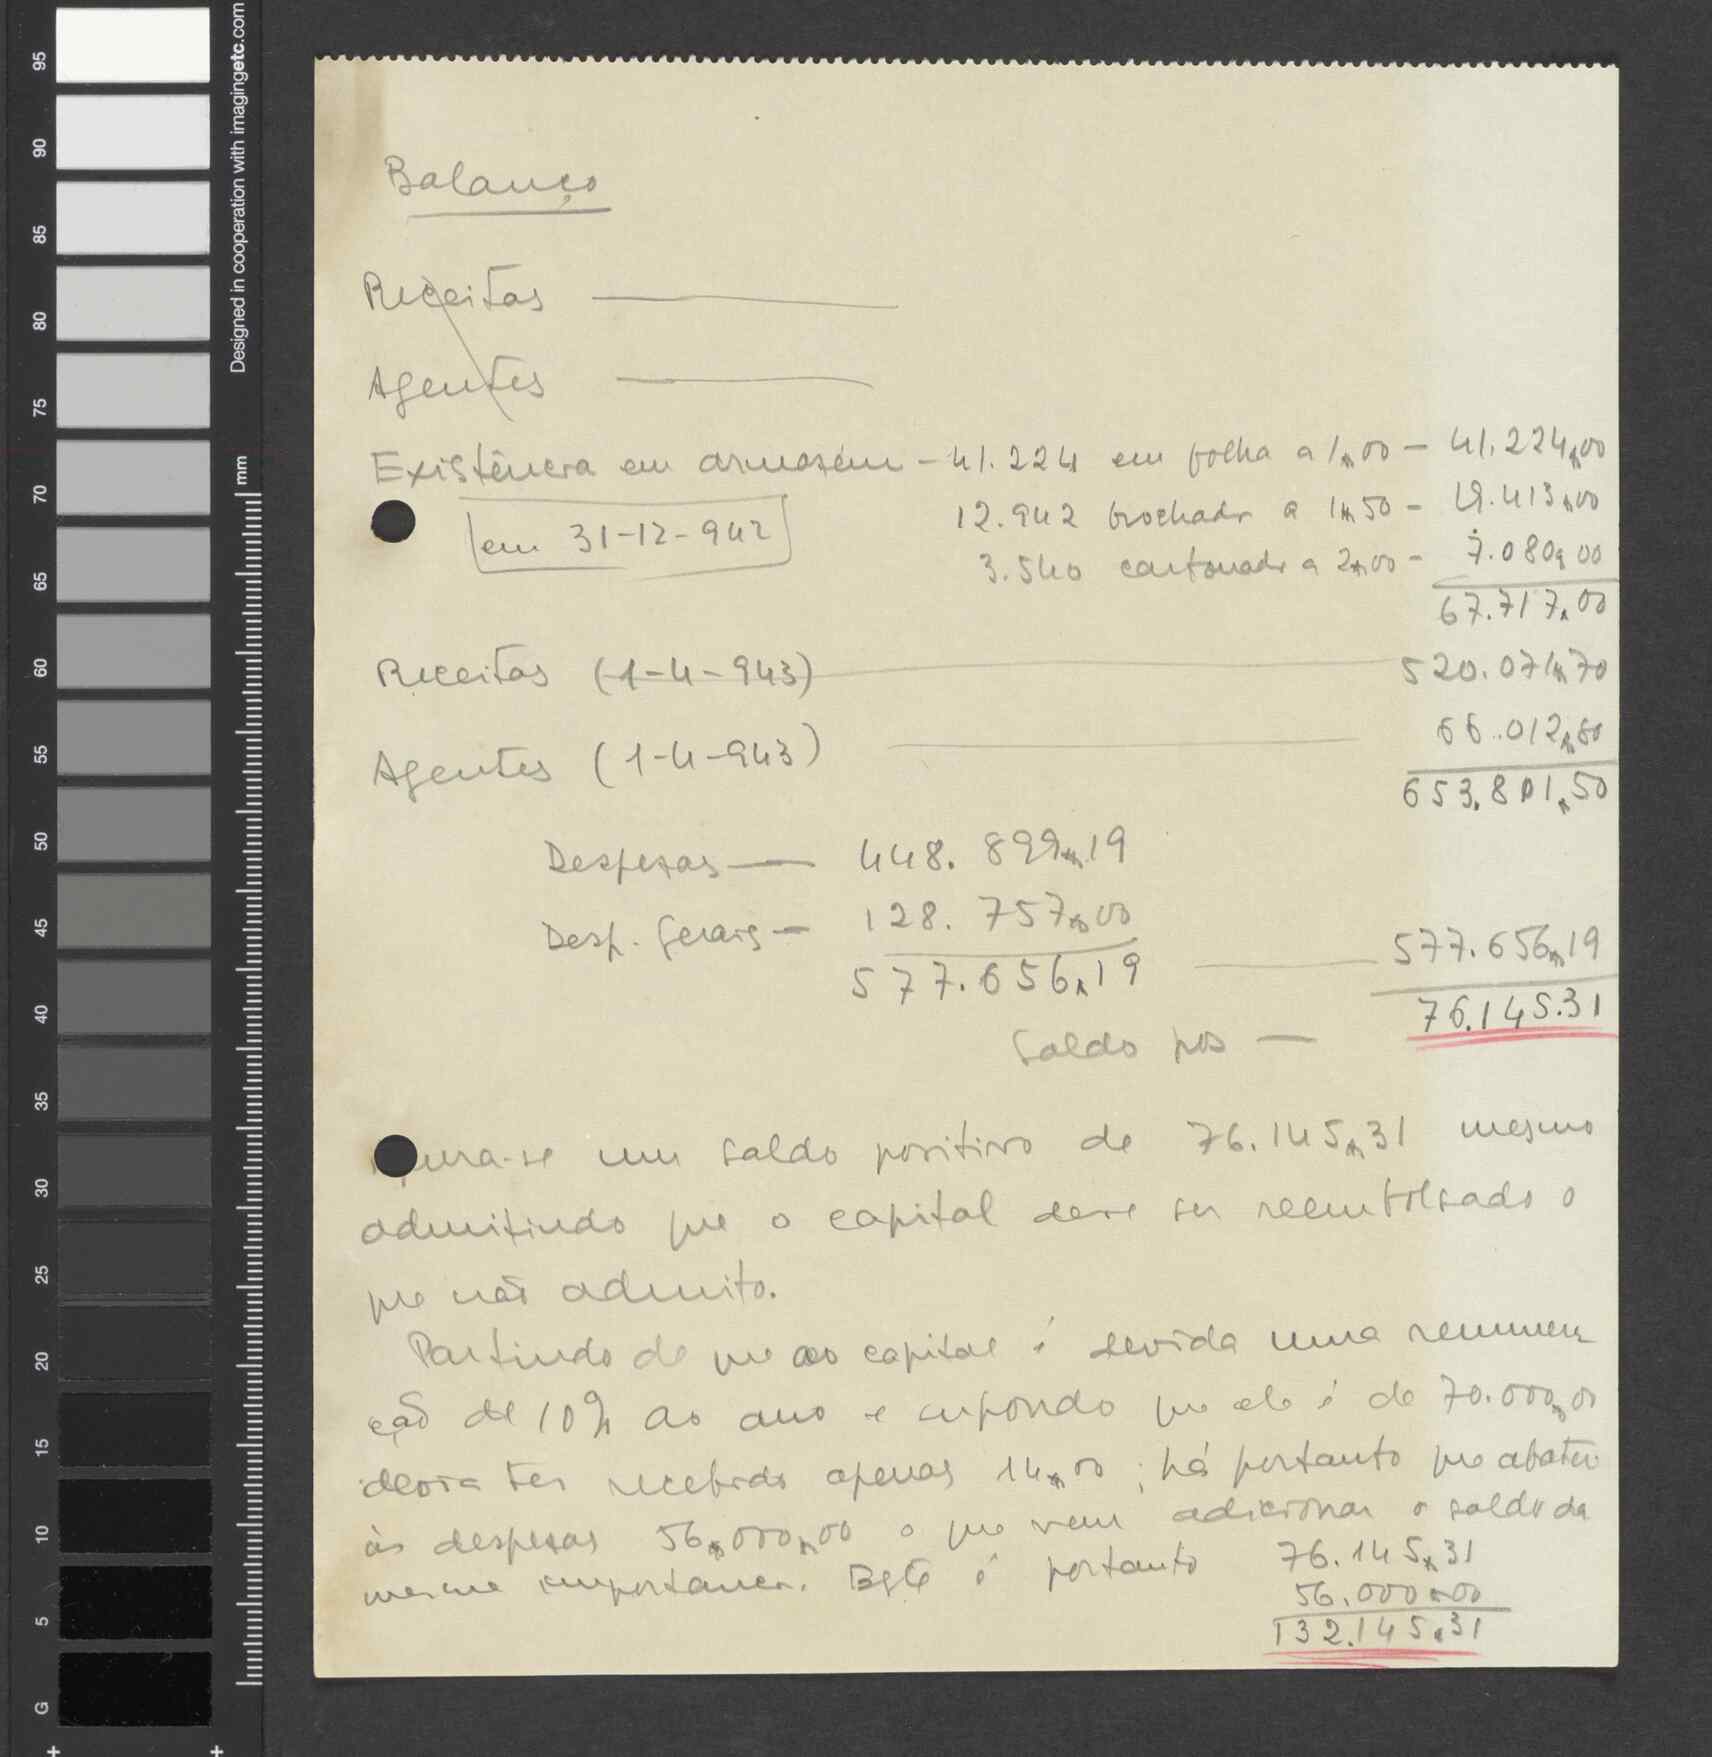 Balanço
Receitas
Agentes
Existência em armazém - 41.224 em folha a 1$00 - 41.224$00
em 31-12-942
12.942 brochado a 1$50 - 19.413$00
3.540 cartonado a 2$00 - 7.080$00
67.717$00
Receitas (1-4-943) 520.071$70
Agentes (1-4-943) 66.012$80
653.801$50
Despesas — 448.899$19
Desp. Gerais — 128.757$00
577.656$19 — 577.656$19
Saldo pos — 76.145.31
um saldo positivo de 76.145$31 mesmo
admitindo que o capital deve ser reembolsado o
que não admito.
Partindo de que ao capital é devida uma remunera
ção de 10% ao ano e supondo que ele é de 70.000$00
devia ter recebido apenas 14$00; há portanto que abater
às despesas 56$000$00 o que vem adicionar o saldo da
mesma importancia. Este é portanto 76.145$31
56.000$00
132.145$31
95
90
85
80
75
70
65
60
55
50
45
40
35
30
25
20
15
10
5
G
mm
Designed in cooperation with imagingetc.com